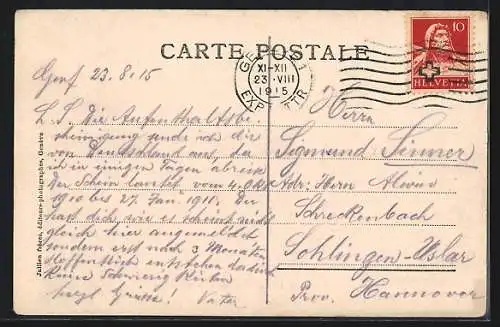 CARTE POSTALE
GE
XI-XII
23·VIII
1915
EXP. TTR
10
HELVETIA
Genf 23.8.15
L. S. Die Aufenthaltsbe-
scheinigung sende ich dir
von Deutschland aus, da
ich in einigen Tagen abreise
Der Schein lautet vom 4. Okt
1910 bis 27. Jan. 1911. Der
hast dich wie es scheint nicht
gleich hier angemeldet
sondern erst nach 3 Monaten
Hoffentlich entstehen dadurch
keine Schwierigkeiten
herzl. Grüsse! Vater
Herrn
Sigmund Sinner
Adr: Herrn Alwin
Schreckenbach
Sohlingen-Uslar
Prov. Hannover
Jullien frères, éditeurs-photographes, Genève